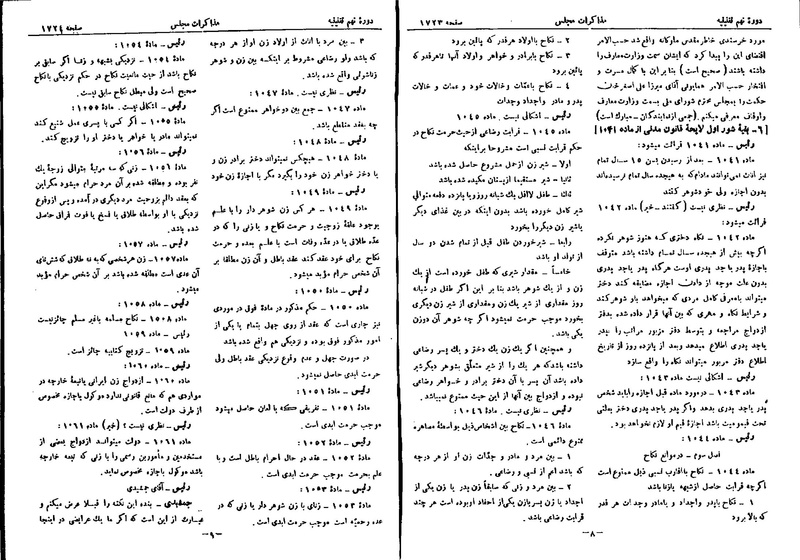 دوره نهم تقنینیه
مذاکرات مجلس
صفحه ۱۷۲۳
مورد خرسندی خاطر مقدس ملوکانه واقع شد حسب الامر
اقتضای این را پیدا کرد که ایشان سمت وزارت معارف را
داشته باشند (صحیح است) بنابراین با کمال مسرت و
افتخار حسب الامر همایونی آقای میرزا علی اصغر خان
حکمت را بمجلس محترم شورای ملی بسمت وزارت معارف
و اوقاف معرفی میکنم. (جمعی از نمایندگان - مبارک است)
[۶- بقیه شور اول لایحه قانون مدنی از ماده ۱۰۴۱]
رئیس - ماده ۱۰۴۱ قرائت میشود:
ماده ۱۰۴۱ - بعد از رسیدن بسن ۱۵ سال تمام
نیز اناث نمی‌توانند مادام که به هیجده سال تمام نرسیده‌اند
بدون اجازه ولی خود شوهر کنند
رئیس - نظری نیست (گفتند - خیر) ماده ۱۰۴۲
قرائت میشود:
ماده ۱۰۴۲ - نکاح دختری که هنوز شوهر نکرده
اگرچه بیش از هیجده سال تمام داشته باشد متوقف
باجازه پدر یا جد پدری اوست هرگاه پدر یا جد پدری
بدون علت موجه از دادن اجازه مضایقه کند دختر
میتواند با معرفی کامل مردی که میخواهد باو شوهر کند
و شرایط نکاح و مهری که بین آنها قرار داده شده بدفتر
ازدواج مراجعه و بتوسط دفتر مزبور مراتب را بپدر
یا جد پدری اطلاع میدهد و بعد از پانزده روز از تاریخ
اطلاع دفتر مزبور میتواند نکاح را واقع سازد
رئیس - اشکالی نیست. ماده ۱۰۴۳:
ماده ۱۰۴۳ - در مورد ماده قبل اجازه را باید شخص
پدر یا جد پدری بدهد و اگر پدر یا جد پدری دختر بعلتی
تحت قیمومیت باشد اجازه قیم او لازم نخواهد بود.
رئیس - ماده ۱۰۴۴:
فصل سوم - در موانع نکاح
ماده ۱۰۴۴ - نکاح با اقارب نسبی ذیل ممنوع است
اگرچه قرابت حاصل از شبهه یا زنا باشد
۱ - نکاح با پدر و اجداد و با مادر و جدات هر قدر
که بالا برود
۲ - نکاح با اولاد هر قدر که پائین برود
۳ - نکاح با برادر و خواهر و اولاد آنها تا هر قدر که
پائین برود
۴ - نکاح با عمات و خالات خود و عمات و خالات
پدر و مادر و اجداد و جدات
رئیس - اشکالی نیست. ماده ۱۰۴۵
ماده ۱۰۴۵ - قرابت رضاعی از حیث حرمت نکاح در
حکم قرابت نسبی است مشروط بر اینکه
اولا - شیر زن از حمل مشروع حاصل شده باشد
ثانیا - شیر مستقیما از پستان مکیده شده باشد
ثالثا - طفل لااقل یک شبانه روز و یا پانزده دفعه متوالی
شیر کامل خورده باشد بدون اینکه در بین غذای دیگر
یا شیر زن دیگر را بخورد
رابعا - شیر خوردن طفل قبل از تمام شدن دو سال
از تولد او باشد
خامسا - مقدار شیری که طفل خورده است از یک
زن و از یک شوهر باشد بنابراین اگر طفل در شبانه
روز مقداری از شیر یک زن و مقداری از شیر زن دیگری
بخورد موجب حرمت نمیشود اگرچه شوهر آن دو زن
یکی باشد.
و همچنین اگر یک زن یک دختر و یک پسر رضاعی
داشته باشد که هر یک را از شیر متعلق بشوهر دیگر شیر
داده باشد آن پسر یا آن دختر برادر و خواهر رضاعی
نبوده و ازدواج بین آنها از این حیث ممنوع نمیباشد.
رئیس - نظری نیست. ماده ۱۰۴۶:
ماده ۱۰۴۶ - نکاح بین اشخاص ذیل بواسطه مصاهره
ممنوع دائمی است.
۱ - بین مرد و مادر و جدات زن او از هر درجه
که باشد اعم از نسبی و رضاعی.
۲ - بین مرد و زنی که سابقا زن پدر یا زن یکی از
اجداد یا زن پسر یا زن یکی از احفاد او بوده است هر چند
قرابت رضاعی باشد.
-۸-
دوره نهم تقنینیه
مذاکرات مجلس
صفحه ۱۷۲۴
۳ - بین مرد با اناث از اولاد زن او از هر درجه
که باشد ولو رضاعی مشروط بر اینکه بین زن و شوهر
زناشوئی واقع شده باشد.
رئیس - نظری نیست. ماده ۱۰۴۷:
ماده ۱۰۴۷ - جمع بین دو خواهر ممنوع است اگر
چه بعقد منقطع باشد.
رئیس - ماده ۱۰۴۸:
ماده ۱۰۴۸ - هیچکس نمیتواند دختر برادر زن و
یا دختر خواهر زن خود را بگیرد مگر با اجازه زن خود
رئیس - ماده ۱۰۴۹:
ماده ۱۰۴۹ - هر کس زن شوهر دار را با علم
بوجود علقه زوجیت و حرمت نکاح و یا زنی را که در
عده طلاق یا در عده وفات است با علم بعده و حرمت
نکاح برای خود عقد کند عقد باطل و آن زن مطلقا بر
آن شخص حرام مؤبد میشود.
رئیس - ماده ۱۰۵۰:
ماده ۱۰۵۰ - حکم مذکور در ماده فوق در موردی
نیز جاری است که عقد از روی جهل بتمام یا یکی از
امور مذکور فوق بوده و نزدیکی هم واقع شده باشد
در صورت جهل و عدم وقوع نزدیکی عقد باطل ولی
حرمت ابدی حاصل نمیشود.
رئیس - ماده ۱۰۵۱:
ماده ۱۰۵۱ - تفریقی که با لعان حاصل میشود
موجب حرمت ابدی است.
رئیس - ماده ۱۰۵۲:
ماده ۱۰۵۲ - عقد در حال احرام باطل است و با
علم بحرمت موجب حرمت ابدی است.
رئیس - ماده ۱۰۵۳:
ماده ۱۰۵۳ - زنای با زن شوهر دار یا زنی که در
عده رجعیه است موجب حرمت ابدی است.
رئیس - ماده ۱۰۵۴:
ماده ۱۰۵۴ - نزدیکی بشبهه و زنا اگر سابق بر
نکاح باشد از حیث مانعیت نکاح در حکم نزدیکی با نکاح
صحیح است ولی مبطل نکاح سابق نیست.
رئیس - اشکالی نیست. ماده ۱۰۵۵:
ماده ۱۰۵۵ - اگر کسی با پسری عمل شنیع کند
نمیتواند مادر یا خواهر یا دختر او را تزویج کند.
رئیس - ماده ۱۰۵۶:
ماده ۱۰۵۶ - زنی که سه مرتبه متوالی زوجه یک
نفر بوده و مطلقه شده بر آن مرد حرام میشود مگر این
که بعقد دائم بزوجیت مرد دیگری در آمده و پس از وقوع
نزدیکی با او بواسطه طلاق یا فسخ یا فوت فراق حاصل
شده باشد.
رئیس - ماده ۱۰۵۷:
ماده ۱۰۵۷ - زن هر شخصی که به نه طلاق که شش تای
آن عدی است مطلقه شده باشد بر آن شخص حرام مؤبد
میشود.
رئیس - ماده ۱۰۵۸:
ماده ۱۰۵۸ - نکاح مسلمه با غیر مسلم جائز نیست
رئیس - ماده ۱۰۵۹
ماده ۱۰۵۹ - تزویج کتابیه جائز است.
رئیس - ماده ۱۰۶۰:
ماده ۱۰۶۰ - ازدواج زن ایرانی با تبعه خارجه در
مواردی هم که مانع قانونی ندارد موکول باجازه مخصوص
از طرف دولت است.
رئیس - نظری نیست؟ (خیر) ماده ۱۰۶۱:
ماده ۱۰۶۱ - دولت میتواند ازدواج بعضی از
مستخدمین و مأمورین رسمی را با زنی که تبعه خارجه
باشد موکول باجازه مخصوص نماید.
رئیس - آقای جمشیدی
جمشیدی - بنده این نکته را قبلا عرض میکنم و
عبارت از این است که اگر ما یک عرایضی در اینجا
-۹-